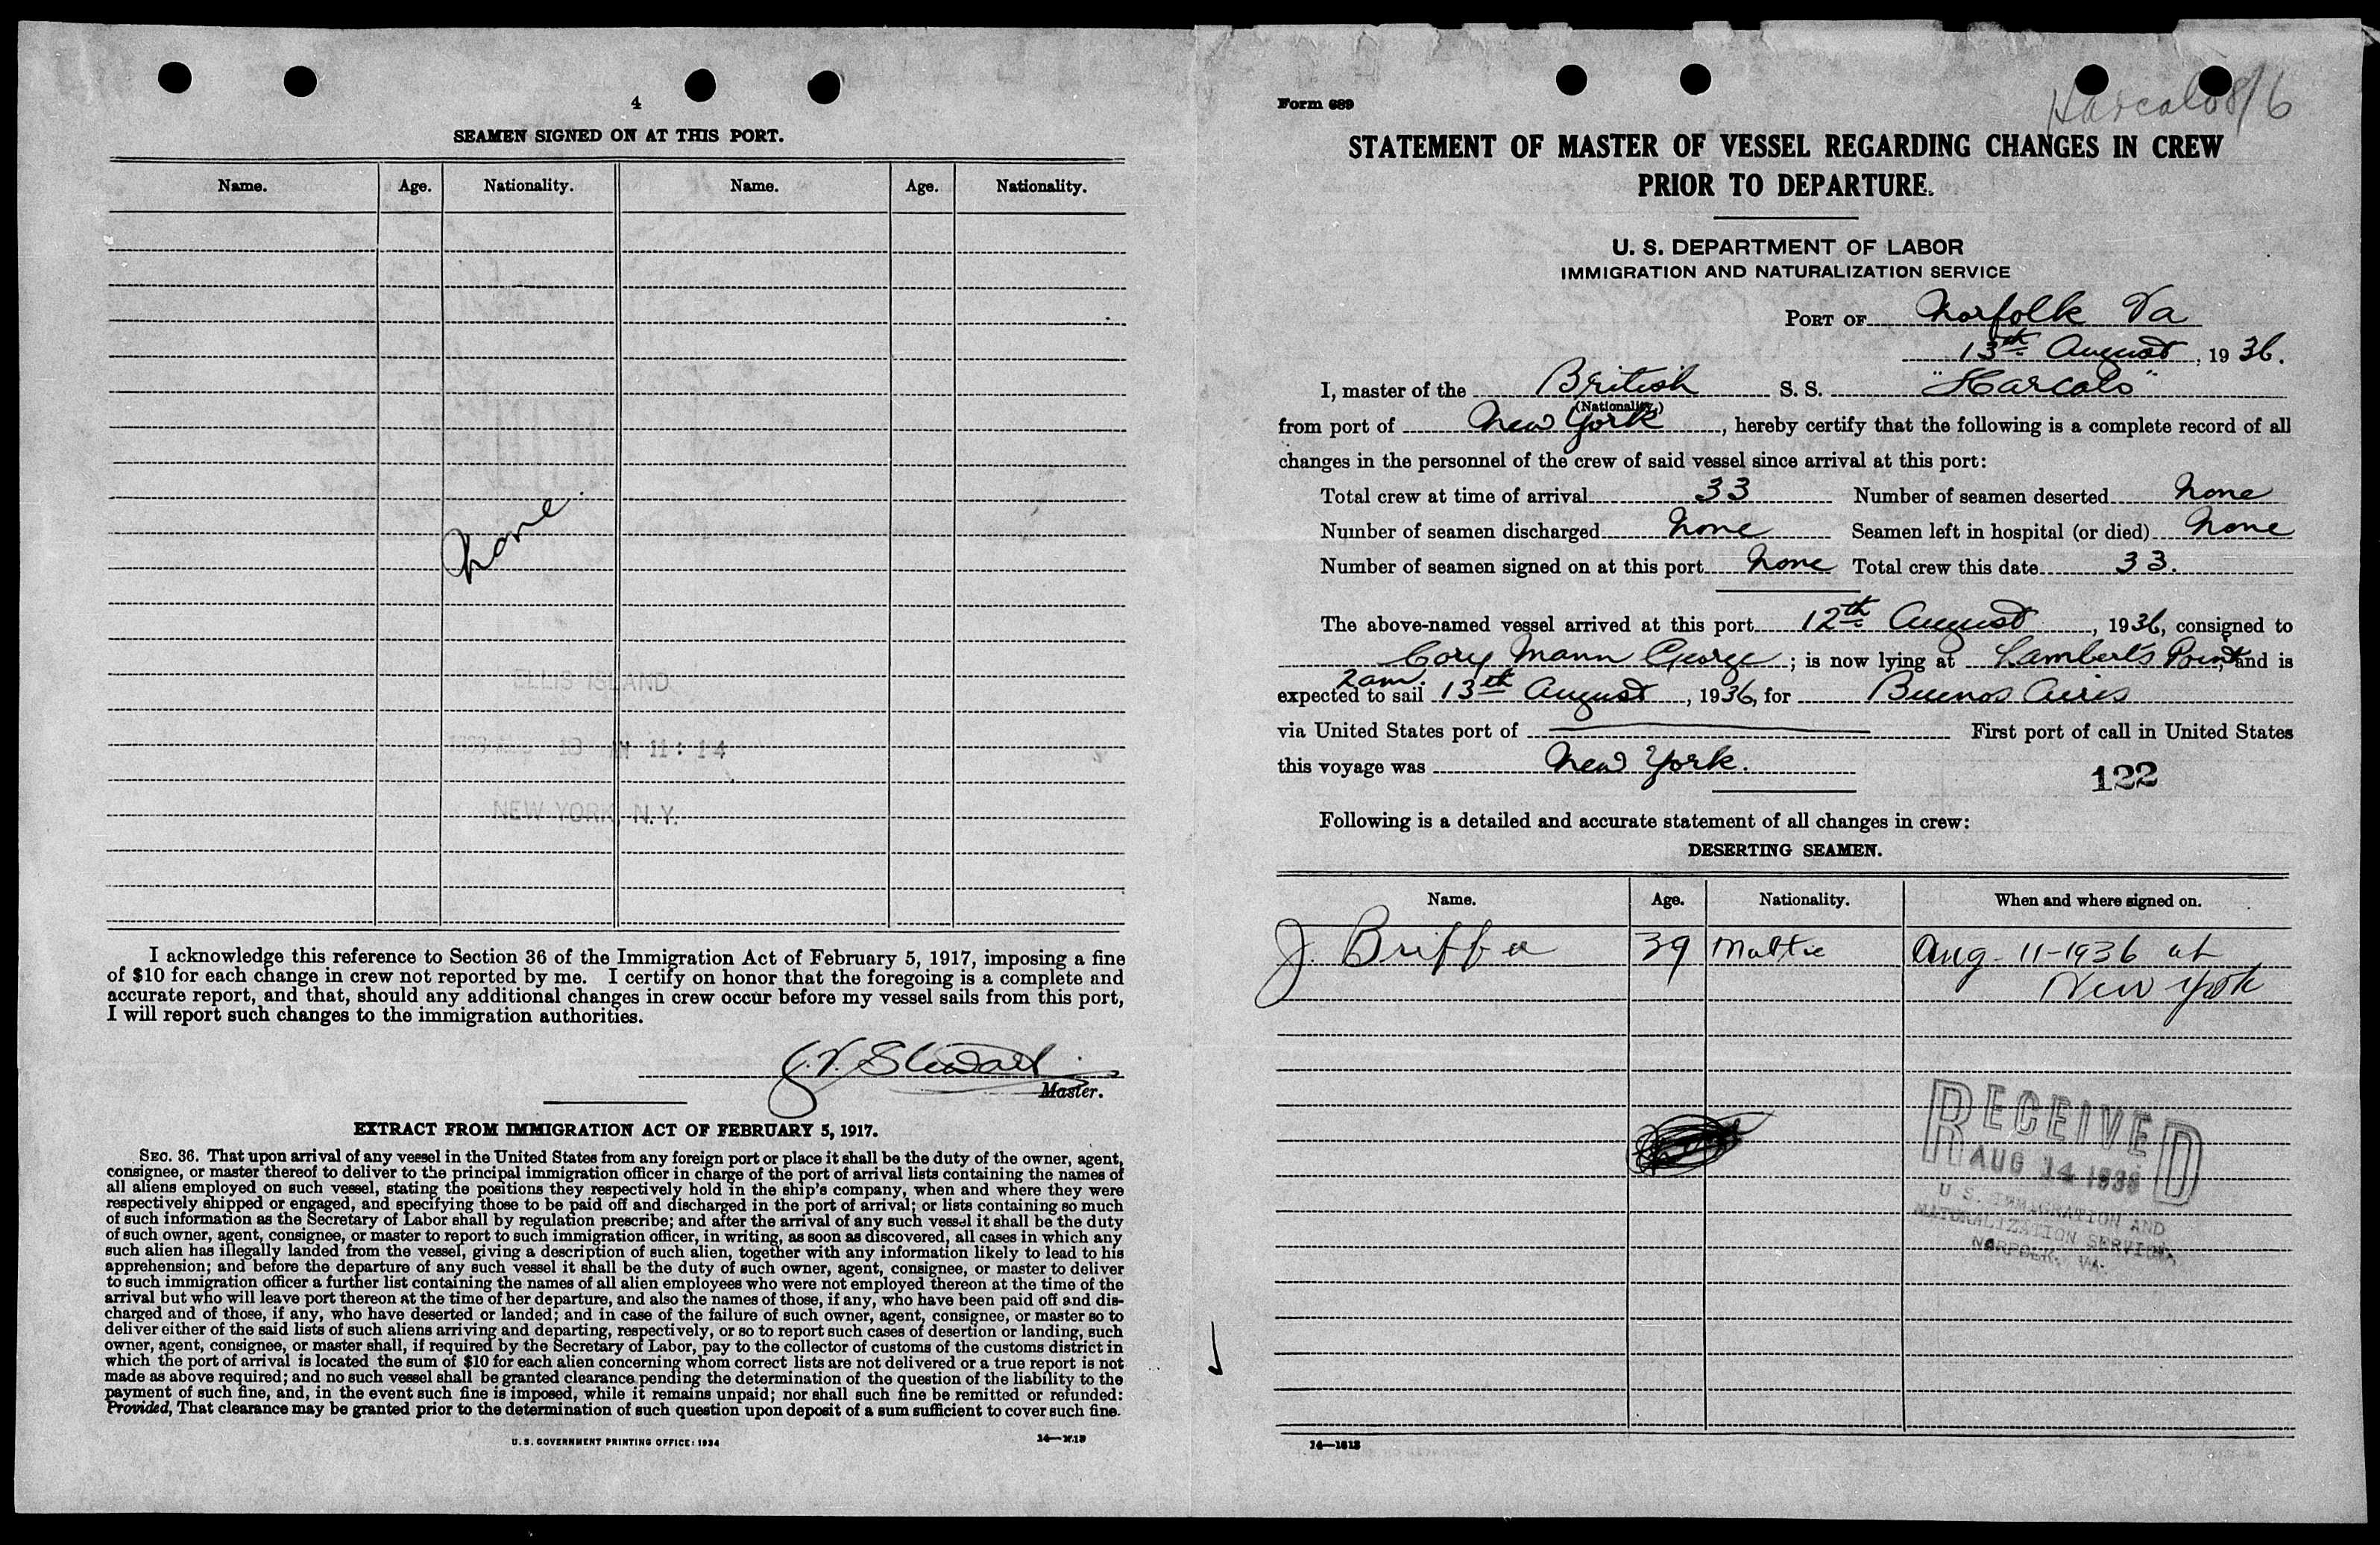 4
SEAMEN SIGNED ON AT THIS PORT.
Name. Age. Nationality. Name. Age. Nationality.
None.
ELLIS ISLAND
11:14
NEW YORK, N.Y.
I acknowledge this reference to Section 36 of the Immigration Act of February 5, 1917, imposing a fine
of $10 for each change in crew not reported by me. I certify on honor that the foregoing is a complete and
accurate report, and that, should any additional changes in crew occur before my vessel sails from this port,
I will report such changes to the immigration authorities.
J.V. Stewart
Master.
EXTRACT FROM IMMIGRATION ACT OF FEBRUARY 5, 1917.
SEC. 36. That upon arrival of any vessel in the United States from any foreign port or place it shall be the duty of the owner, agent,
consignee, or master thereof to deliver to the principal immigration officer in charge of the port of arrival lists containing the names of
all aliens employed on such vessel, stating the positions they respectively hold in the ship's company, when and where they were
respectively shipped or engaged, and specifying those to be paid off and discharged in the port of arrival; or lists containing so much
of such information as the Secretary of Labor shall by regulation prescribe; and after the arrival of any such vessel it shall be the duty
of such owner, agent, consignee, or master to report to such immigration officer, in writing, as soon as discovered, all cases in which any
such alien has illegally landed from the vessel, giving a description of such alien, together with any information likely to lead to his
apprehension; and before the departure of any such vessel it shall be the duty of such owner, agent, consignee, or master to deliver
to such immigration officer a further list containing the names of all alien employees who were not employed thereon at the time of the
arrival but who will leave port thereon at the time of her departure, and also the names of those, if any, who have been paid off and dis-
charged and of those, if any, who have deserted or landed; and in case of the failure of such owner, agent, consignee, or master so to
deliver either of the said lists of such aliens arriving and departing, respectively, or so to report such cases of desertion or landing, such
owner, agent, consignee, or master shall, if required by the Secretary of Labor, pay to the collector of customs of the customs district in
which the port of arrival is located the sum of $10 for each alien concerning whom correct lists are not delivered or a true report is not
made as above required; and no such vessel shall be granted clearance pending the determination of the question of the liability to the
payment of such fine, and, in the event such fine is imposed, while it remains unpaid; nor shall such fine be remitted or refunded:
Provided, That clearance may be granted prior to the determination of such question upon deposit of a sum sufficient to cover such fine.
U.S. GOVERNMENT PRINTING OFFICE: 1934
Form 689
Harcalo 8/6
STATEMENT OF MASTER OF VESSEL REGARDING CHANGES IN CREW
PRIOR TO DEPARTURE.
U. S. DEPARTMENT OF LABOR
IMMIGRATION AND NATURALIZATION SERVICE
PORT OF Norfolk Va
13th August, 1936.
I, master of the British S. S. "Harcalo"
(Nationality.)
from port of New York, hereby certify that the following is a complete record of all
changes in the personnel of the crew of said vessel since arrival at this port:
Total crew at time of arrival 33 Number of seamen deserted None
Number of seamen discharged None Seamen left in hospital (or died) None
Number of seamen signed on at this port None Total crew this date 33.
The above-named vessel arrived at this port 12th August, 1936, consigned to
Cory Mann George; is now lying at Lamberts Point, and is
2am.
expected to sail 13th August, 1936, for Buenos Aires
via United States port of First port of call in United States
this voyage was New York.
122
Following is a detailed and accurate statement of all changes in crew:
DESERTING SEAMEN.
Name. Age. Nationality. When and where signed on.
J. Briffa 39 Maltie Aug-11-1936 at
New York
RECEIVED
AUG 14 1936
U S. IMMIGRATION AND
NATURALIZATION SERVICE
NORFOLK, VA.
14—1613